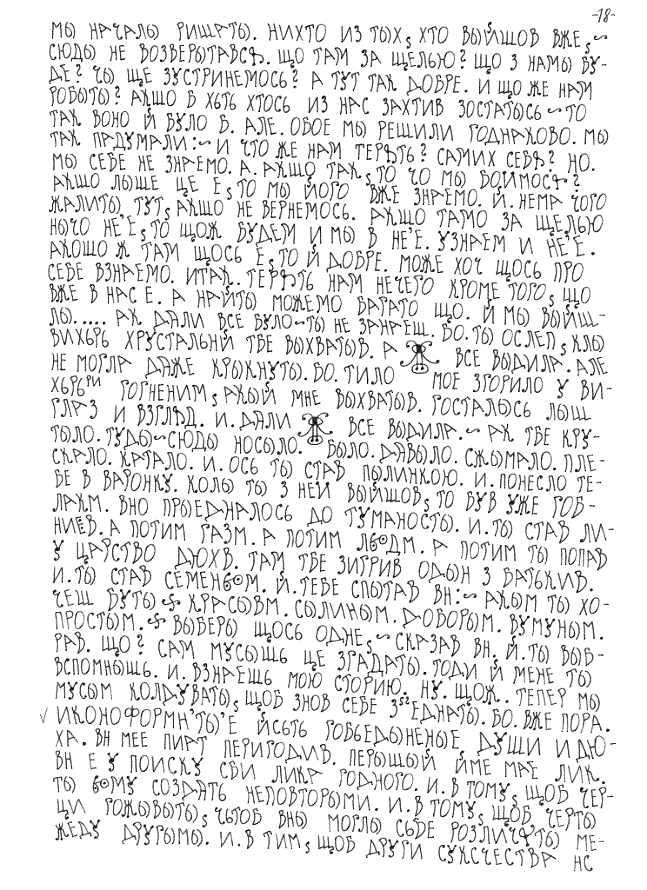 -18-
МЫ НАЧАЛЫ РИШАТЫ. НИХТО ИЗ ТЫХ, ХТО ВЫЙШОВ ВЖЕ,~
СЮДЫ НЕ ВОЗВЕРЫТАВСѢ. ЩО ТАМ ЗА ЩЕЛЬЮ? ЩО З НАМЫ БУ-
ДЕ? ЧЫ ЩЕ ЗУСТРИНЕМОСЬ? А ТУТ ТАК ДОБРЕ. И ЩО ЖЕ НАМ
РОБЫТЫ? АКШО Б ХЬТЬ ХТОСЬ ИЗ НАС ЗАХТИВ ЗОСТАТЫСЬ~ТО
ТАК ВОНО Й БУЛО Б. АЛЕ. ОБОЕ МЫ РЕШИЛИ ГОДНАКОВО. МЫ
ТАК ПАДУМАЛИ:~И ЧТО ЖЕ НАМ ТЕРѢТЬ? САМИХ СЕБѢ? НО.
МЫ СЕБЕ НЕ ЗНАЕМО. А. АКЩО ТАК, ТО ЧО МЫ БОИМОСѢ?
АКШО ЛЫШЕ ЦЕ Е, ТО МЫ ЙОГО ВЖЕ ЗНАЕМО. Й. НЕМА ЧОГО
ЖАЛИТЫ, ТУТ, АКШО НЕ ВЕРНЕМОСЬ. АКЩО ТАМО ЗА ЩЕЛЬЮ
НЫЧО НЕ'Е, ТО ЩОЖ БУДЕМ И МЫ В НЕ'Е. УЗНАЕМ И НЕ'Е.
АКОШО Ж ТАМ ЩОСЬ Е, ТО Й ДОБРЕ. МОЖЕ ХОЧ ЩОСЬ ПРО
СЕБЕ ВЗНАЕМО. ИТАК. ТЕРѢТЬ НАМ НЕЧЕГО КРОМЕ ТОГО, ЩО
ВЖЕ В НАС Е. А НАЙТЫ МОЖЕМО БАГАТО ЩО. Й МЫ ВЫЙЩ-
ЛЫ..... АК ДАЛИ ВСЕ БУЛО~ТЫ НЕ ЗАНАЕШ. БО. ТЫ ОСЛЕП, КЛЫ
ВИХЬРЬ ХРУСТАЛЬНИ ТБЕ ВЫХВАТЫВ. А ВСЕ ВЫДИЛА. АЛЕ
НЕ МОГЛА ДАЖЕ КРЫКНУТЫ. БО. ТИЛО МОЕ ЗГОРИЛО У ВИ-
ХЬРЬРИ ГОГНЕНИМ, АКЫЙ МНЕ ВЫХВАТЫВ. ГОСТАЛЫСЬ ЛЫШ
ГЛАЗ И ВЗГЛѢД. И. ДАЛИ ВСЕ ВЫДИЛА.~АК ТБЕ КРУ-
ТЫЛО. ТУДЫ~СЮДЫ НОСЫЛО. БЫЛО. ДАВЫЛО. СЖЫМАЛО. ПЛЕ-
СКАЛО. КАТАЛО. И. ОСЬ ТЫ СТАВ ПЫЛИНКОЮ. И. ПОНЕСЛО ТЕ-
БЕ В ВАРОНКУ. КОЛЫ ТЫ З НЕЙ ВЫЙШОВ, ТО БУВ УЖЕ ГОБ-
ЛАКМ. ВНО ПРЫЕДНАЛОСЬ ДО ТУМАНОСТЫ. И. ТЫ СТАВ ЛИ-
НИЕВ. А ПОТИМ ГАЗМ. А ПОТИМ ЛЬОДМ. А ПОТИМ ТЫ ПОПАВ
У ЦАРСТВО ДЮХВ. ТАМ ТБЕ ЗИГРИВ ОДЫН З БАТЬКИВ.
И. ТЫ СТАВ СЕМЕНЬОМ. Й. ТЕБЕ СПЫТАВ ВН:~АКЫМ ТЫ ХО-
ЧЕШ БУТЫ~КРАСЫВМ. СЫЛИНЫМ. ДОБОРЫМ. ВУМУНЫМ.
ПРОСТЫМ.~ВЫБЕРЫ ЩОСЬ ОДНЕ,~СКАЗАВ ВН. Й. ТЫ ВЫБ-
РАВ. ЩО? САМ МУСЫШЬ ЦЕ ЗГАДАТЫ. ТОДИ Й МЕНЕ ТЫ
ВСПОМНЫШЬ. И. ВЗНАЕШЬ МОЮ СТОРИЮ. НУ. ЩОЖ. ТЕПЕР МЫ
МУСЫМ КОЛДУВАТЫ, ЩОБ ЗНОВ СЕБЕ ЗЪЕДНАТЫ. БО. ВЖЕ ПОРА.
√ ИКОНОФОРМН'ТЫ'Е ЙСЬТЬ ГОБЬЕДЫНЕНЫЕ ДУШИ И ДЮ-
ХА. ВН МЕЕ ПИАТ ПЕРИГОДИВ. ПЕРЫШЫЙ ЙМЕ МАЕ ЛИК.
ВН Е У ПОИСКУ СБИ ЛИКА РОДНОГО. И. В ТОМУ, ЩОБ ЧЕР-
ТЫ ЬОМУ СОЗДАТЬ НЕПОВТОРЫМИ. И. В ТОМУ, ЩОБ ЧЕРТЫ
ЦИ ГОЖЫВЫТЫ, ЧЬТОБ ВНЫ МОГЛЫ СЬБЕ РОЗЛИЧѢТЫ МЕ-
ЖЕДУ ДРУГЫМЫ. И. В ТИМ, ЩОБ ДРУГИ СУКСЧЕСТВА НС